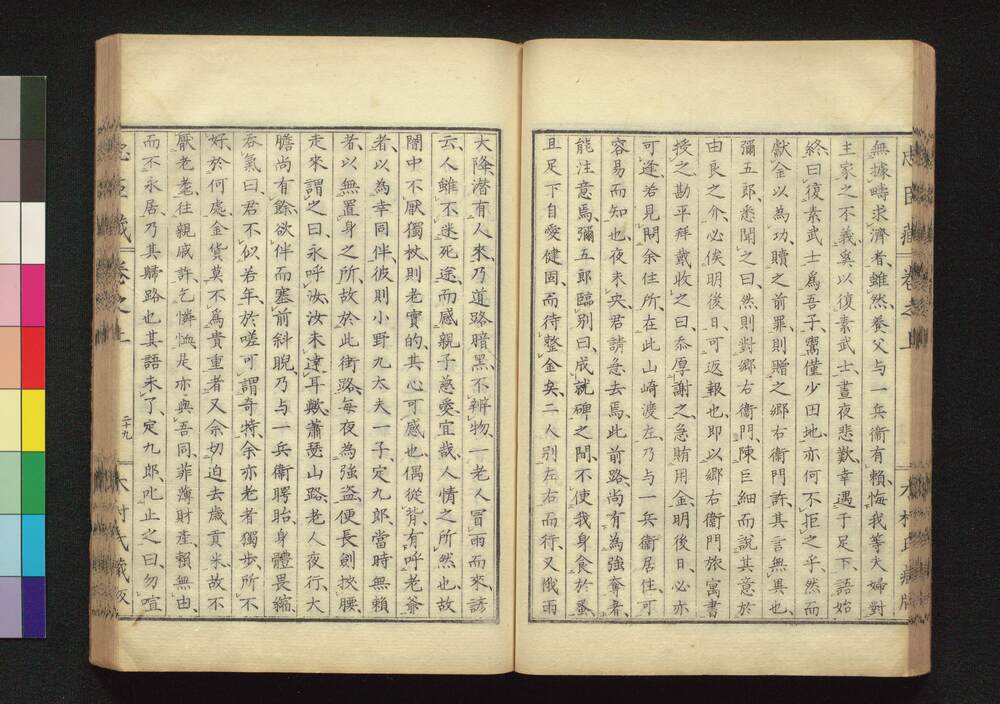 無據疇求濟者雖然養父与一兵衞有賴悔我等夫婦對
主家之不義奚以復素武士晝夜悲歎幸遇于足下語始
終曰復素武士爲吾子鬻僅少田地亦何不拒之乎然而
獻金以為功贖之前罪則贈之郷右衞門許其言無異也
彌五郎悉聞之曰然則對郷右衞門陳巨細而說其意於
由良之介必俟明後日可返報也即以郷右衞門旅寓書
授之勘平拜戴收之曰忝厚謝之急賄用金明後日必亦
可逢若見問余住所在此山崎渡左乃与一兵衞居住可
容易而知也夜未央君請急去焉此前路尚有為強奪者
能注意焉彌五郎臨別曰成就碑之間不使我身食於蚤
且足下自愛健固而待整金矣二人別左右而行又俄雨
大降潜有人來乃道路暗黑不辨物一老人冒雨而來諺
云人雖不迷死途而感親子慈愛宜哉人情之所然也故
闇中不厭獨杖則老實的其心可感也偶從背有呼老爺
者以為幸同伴彼則小野九太夫一子定九郎當時無賴
者以無置身之所故於此街路每夜為強盜便長劍挾腰
走來謂之曰永呼汝汝未達耳歟蕭瑟山路老人夜行大
膽尚有餘欲伴而塞前斜睨乃与一兵衞愕眙身體畏縮
吞氣曰君不似若年於嗟可謂奇特余亦老者獨步所不
好於何處金貨莫不爲貴重者又余切迫去歲貢米故不
厭老耄往親戚許乞憐恤是亦與吾同菲薄財產賴無由
而不永居乃其歸路也其語未了定九郎叱止之曰勿喧
忠臣藏 卷之上
二十九
木村氏藏版